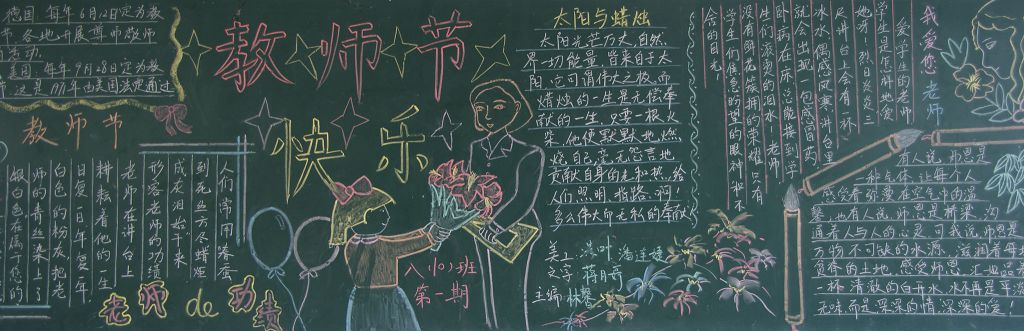 德国 每年6月12日定为教
师节,各地开展尊师敬师
活动。
美国 每年9月28日定为
教师节
教师节
快乐
教师节
人们常用春蚕
到死丝方尽蜡炬
成灰泪始干来
形容老师的功绩
老师在讲台上
耕耘着他的一生
日复一日年复一年
白色的粉灰把老
师的青丝染上了
银白色在属于您的
老师de功绩
八(10)班
第一期
太阳与蜡烛
太阳光芒万丈,自然
界一切能量,皆来自于太
阳,它可谓伟大之极,而
蜡烛的一生是无偿奉
献的一生,只要一根火
柴,他便默默地燃
烧自己,毫无怨言地
贡献自身的光和热,给
人们照明,指路,啊!
多么伟大而无私的奉献
美工
文字
主编
我爱您老师
爱学生的老师
学生是怎样地爱
尽他呀!烈日炎炎三
尺讲台上会有一杯
冰水,偶感风寒,讲台里
就会出现一包感冒药
卧病在床,总能接到学
生们滚烫的泪水!老师
没有鲜花簇拥的荣耀,只有
学生们候急的望的眼神和不
舍的目光!
有人说,师恩是
一种气体,让每个人
感觉有弥漫在空气中的温
馨,也有人说,师恩是桥梁,沟
通着人与人的心灵,可我说,师恩是
万物不可缺的水源,滋润着每寸
贫脊的土地,感受师恩,
一杯清放的白开水,
无味,而是深深的情,深深的爱!